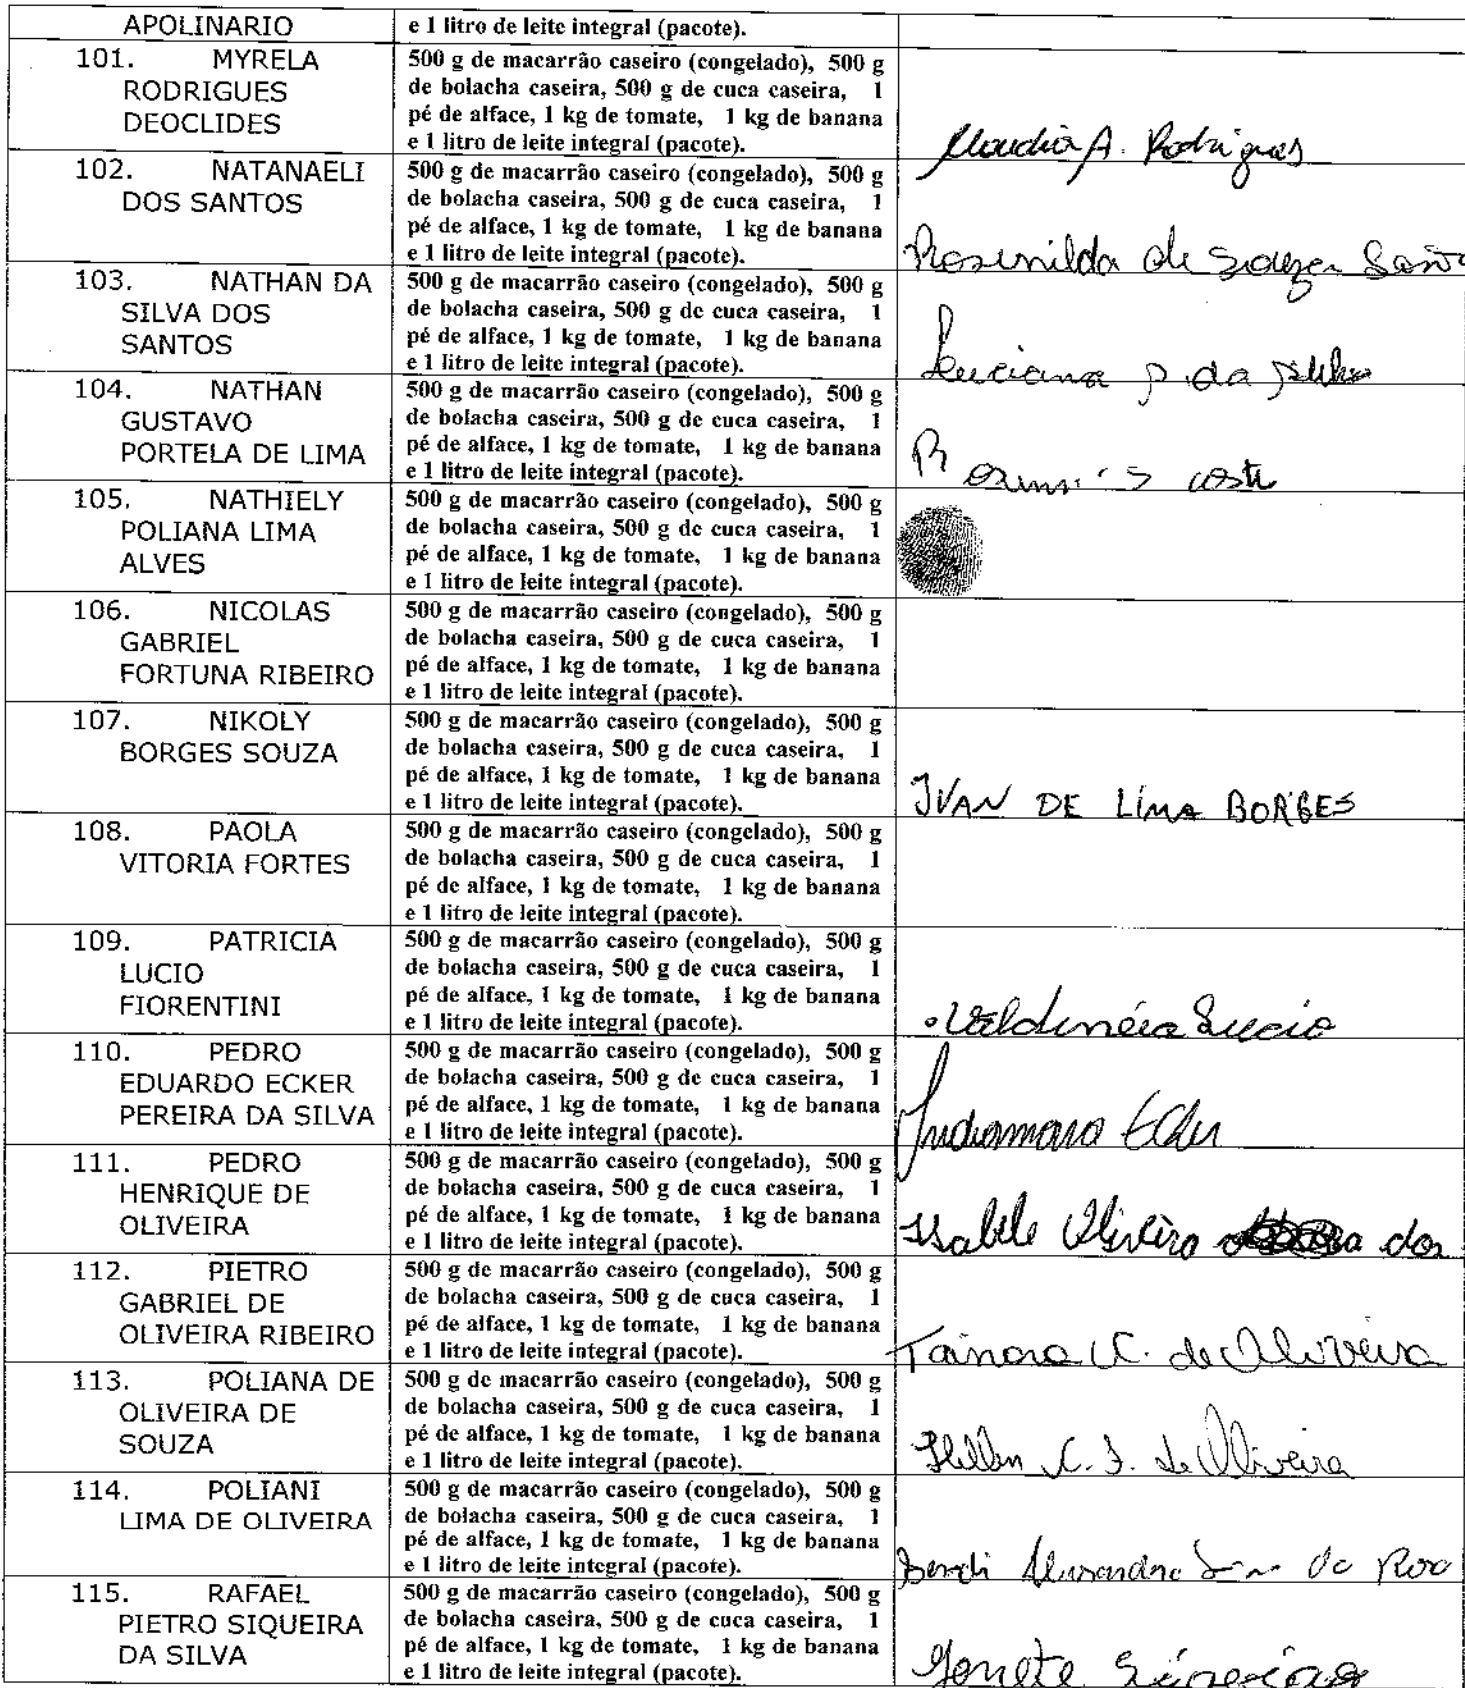 APOLINARIO
e 1 litro de leite integral (pacote).
101. MYRELA
RODRIGUES
DEOCLIDES
500 g de macarrão caseiro (congelado), 500 g
de bolacha caseira, 500 g de cuca caseira, 1
pé de alface, 1 kg de tomate, 1 kg de banana
e 1 litro de leite integral (pacote).
Claudia A. Rodrigues
102. NATANAELI
DOS SANTOS
500 g de macarrão caseiro (congelado), 500 g
de bolacha caseira, 500 g de cuca caseira, 1
pé de alface, 1 kg de tomate, 1 kg de banana
e 1 litro de leite integral (pacote).
Rosenilda de Souza
103. NATHAN DA
SILVA DOS
SANTOS
500 g de macarrão caseiro (congelado), 500 g
de bolacha caseira, 500 g de cuca caseira, 1
pé de alface, 1 kg de tomate, 1 kg de banana
e 1 litro de leite integral (pacote).
Luciana P. da Silva
104. NATHAN
GUSTAVO
PORTELA DE LIMA
500 g de macarrão caseiro (congelado), 500 g
de bolacha caseira, 500 g de cuca caseira, 1
pé de alface, 1 kg de tomate, 1 kg de banana
e 1 litro de leite integral (pacote).
105. NATHIELY
POLIANA LIMA
ALVES
500 g de macarrão caseiro (congelado), 500 g
de bolacha caseira, 500 g de cuca caseira, 1
pé de alface, 1 kg de tomate, 1 kg de banana
e 1 litro de leite integral (pacote).
106. NICOLAS
GABRIEL
FORTUNA RIBEIRO
500 g de macarrão caseiro (congelado), 500 g
de bolacha caseira, 500 g de cuca caseira, 1
pé de alface, 1 kg de tomate, 1 kg de banana
e 1 litro de leite integral (pacote).
107. NIKOLY
BORGES SOUZA
500 g de macarrão caseiro (congelado), 500 g
de bolacha caseira, 500 g de cuca caseira, 1
pé de alface, 1 kg de tomate, 1 kg de banana
e 1 litro de leite integral (pacote).
IVAN DE LIMA BORGES
108. PAOLA
VITORIA FORTES
500 g de macarrão caseiro (congelado), 500 g
de bolacha caseira, 500 g de cuca caseira, 1
pé de alface, 1 kg de tomate, 1 kg de banana
e 1 litro de leite integral (pacote).
109. PATRICIA
LUCIO
FIORENTINI
500 g de macarrão caseiro (congelado), 500 g
de bolacha caseira, 500 g de cuca caseira, 1
pé de alface, 1 kg de tomate, 1 kg de banana
e 1 litro de leite integral (pacote).
Valdinéia Lucio
110. PEDRO
EDUARDO ECKER
PEREIRA DA SILVA
500 g de macarrão caseiro (congelado), 500 g
de bolacha caseira, 500 g de cuca caseira, 1
pé de alface, 1 kg de tomate, 1 kg de banana
e 1 litro de leite integral (pacote).
Indiamara Ecker
111. PEDRO
HENRIQUE DE
OLIVEIRA
500 g de macarrão caseiro (congelado), 500 g
de bolacha caseira, 500 g de cuca caseira, 1
pé de alface, 1 kg de tomate, 1 kg de banana
e 1 litro de leite integral (pacote).
Isabele Oliveira dos
112. PIETRO
GABRIEL DE
OLIVEIRA RIBEIRO
500 g de macarrão caseiro (congelado), 500 g
de bolacha caseira, 500 g de cuca caseira, 1
pé de alface, 1 kg de tomate, 1 kg de banana
e 1 litro de leite integral (pacote).
Tainara C. de Oliveira
113. POLIANA DE
OLIVEIRA DE
SOUZA
500 g de macarrão caseiro (congelado), 500 g
de bolacha caseira, 500 g de cuca caseira, 1
pé de alface, 1 kg de tomate, 1 kg de banana
e 1 litro de leite integral (pacote).
Hellen C. F. de Oliveira
114. POLIANI
LIMA DE OLIVEIRA
500 g de macarrão caseiro (congelado), 500 g
de bolacha caseira, 500 g de cuca caseira, 1
pé de alface, 1 kg de tomate, 1 kg de banana
e 1 litro de leite integral (pacote).
115. RAFAEL
PIETRO SIQUEIRA
DA SILVA
500 g de macarrão caseiro (congelado), 500 g
de bolacha caseira, 500 g de cuca caseira, 1
pé de alface, 1 kg de tomate, 1 kg de banana
e 1 litro de leite integral (pacote).